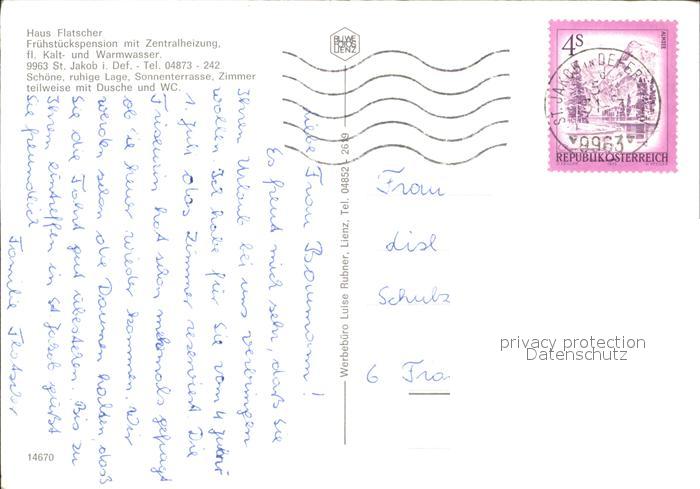 Haus Flatscher
Frühstückspension mit Zentralheizung,
fl. Kalt- und Warmwasser.
9963 St. Jakob i. Def. - Tel. 04873 - 242
Schöne, ruhige Lage, Sonnenterrasse, Zimmer
teilweise mit Dusche und WC.
Liebe Frau Baumann!
Es freut mich sehr, daß Sie
Ihren Urlaub bei uns verbringen
wollen. Ich habe für Sie vom 4 Juni
1. Juli das Zimmer reserviert Die
Friseurin hat schon mehrmals gefragt
ob sie heuer wieder kommen. Wir
werden schon die Daumen halten, daß
Sie die Fahrt gut überstehen. Bis zu
Ihrem eintreffen in St Jakob grüßt
Sie freundlich
Familie Flatscher
14670
Werbebüro Luise Rubner, Lienz, Tel. 04852 - 2619
4s
ALMSEE
REPUBLIK ÖSTERREICH
ST. JAKOB IN DEFER
9963
Frau
Lisl
Schulz
6 Fra
privacy protection
Datenschutz